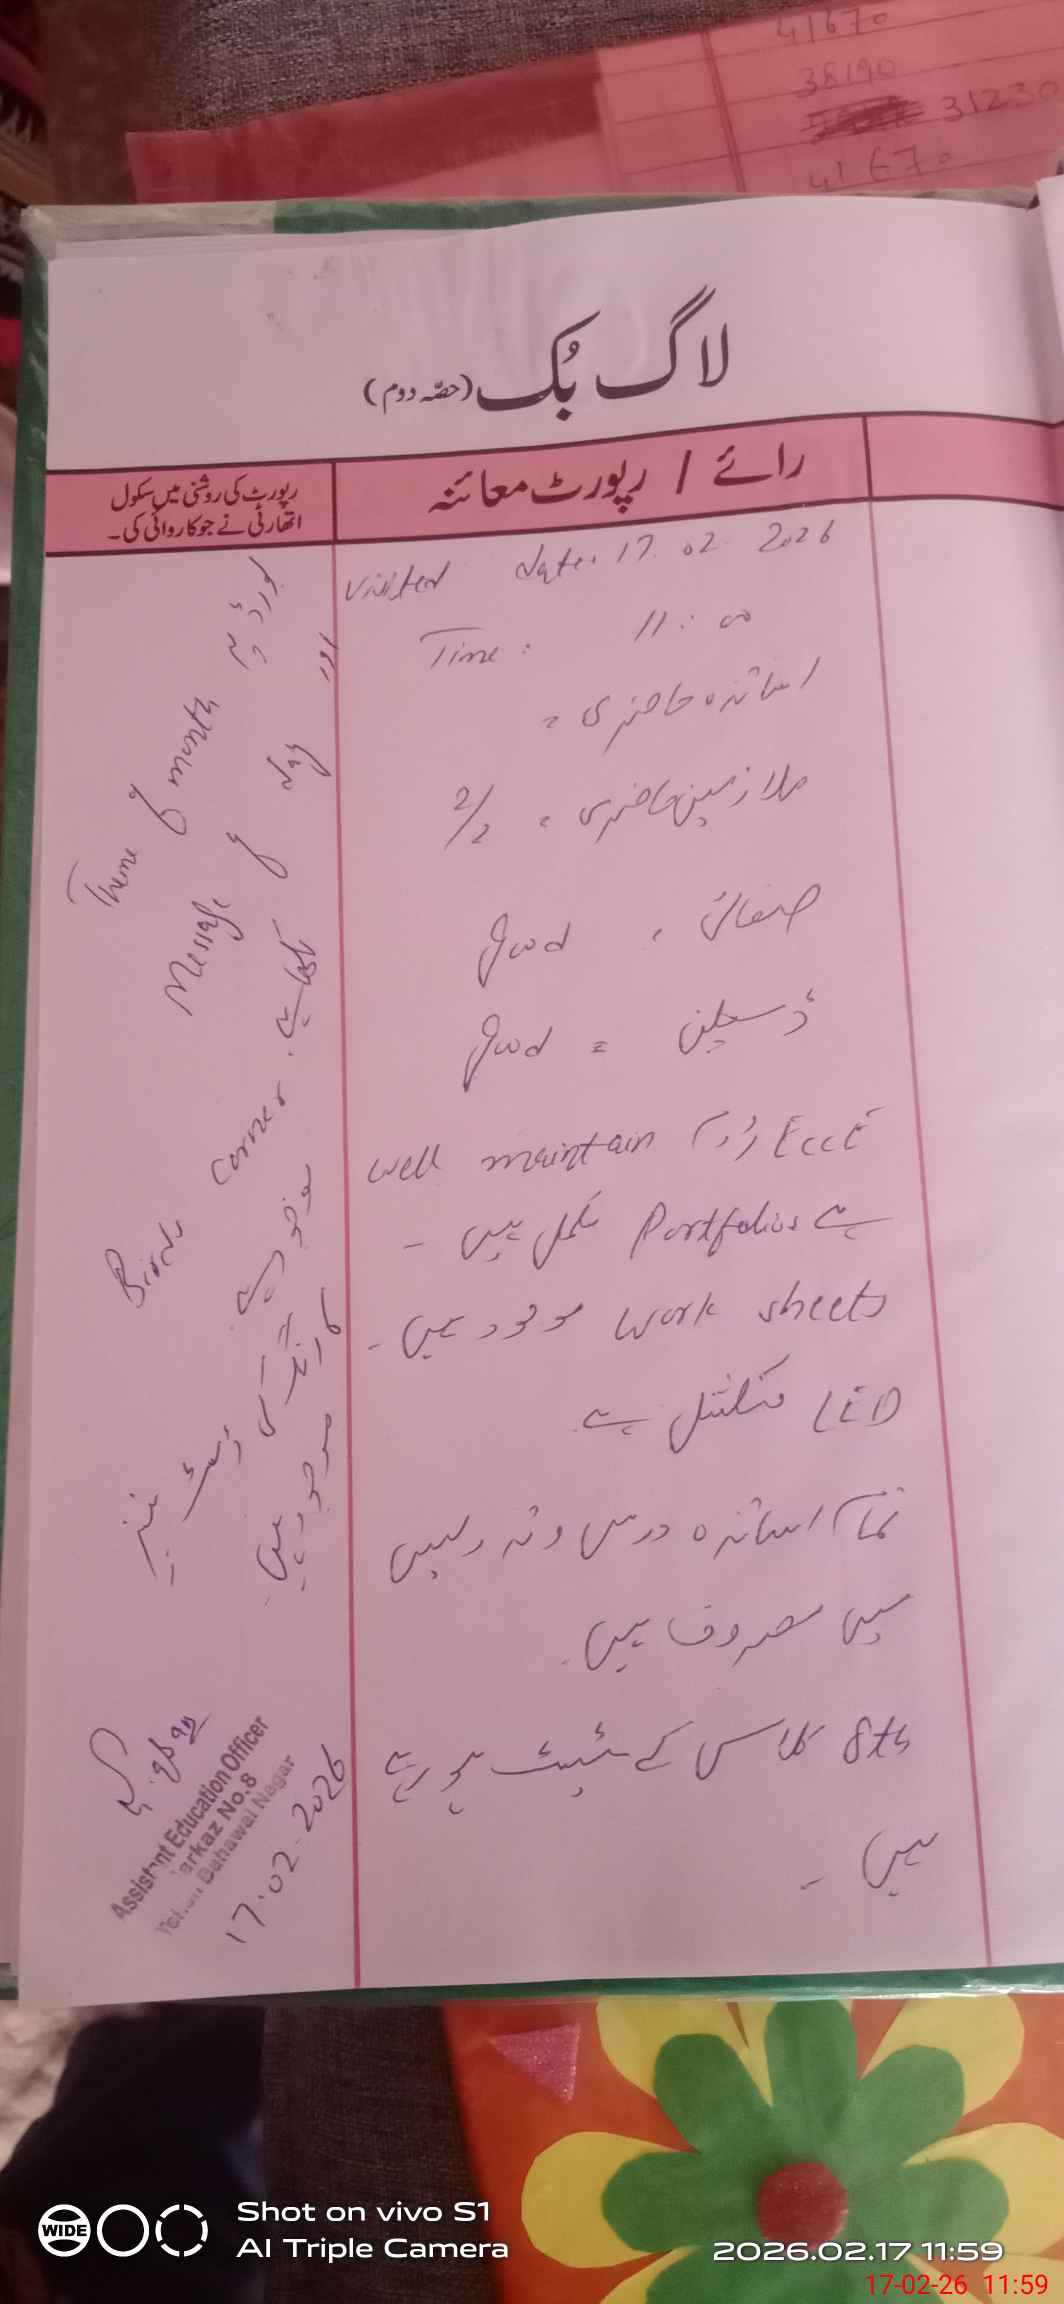 41670
38190
31230
41670
لاگ بُک (حصّہ دوم)
رائے / رپورٹ معائنہ
رپورٹ کی روشنی میں سکول
اتھارٹی نے جو کاروائی کی۔
Visited date. 17.02.2026
Time: 11:00
اساتذہ حاضری =
ملازمین حاضری = 2/2
صفائی = Good
ڈسپلن = Good
ECCE روم well maintain
ہے Portfolios مکمل ہیں -
work sheets موجود ہیں -
LED فنکشنل ہے
تمام اساتذہ درس و تدریس
میں مصروف ہیں
8th کلاس کے ٹیسٹ ہو رہے
ہیں -
بورڈ پر
Theme of month اور
Message of day
لکھا ہے
Birds corner
موجود ہے
موجود ہیں
Assistant Education Officer
Markaz No.8
Tehsil Bahawal Nagar
17.02.2026
WIDE
Shot on vivo S1
AI Triple Camera
2026.02.17 11:59
17-02-26 11:59